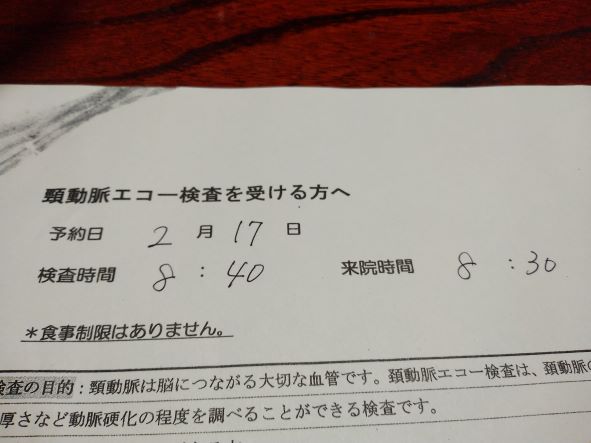 頸動脈エコー検査を受ける方へ
予約日 2月17日
検査時間 8:40 来院時間 8:30
*食事制限はありません。
検査の目的:頸動脈は脳につながる大切な血管です。頚動脈エコー検査は、頸動脈の
厚さなど動脈硬化の程度を調べることができる検査です。